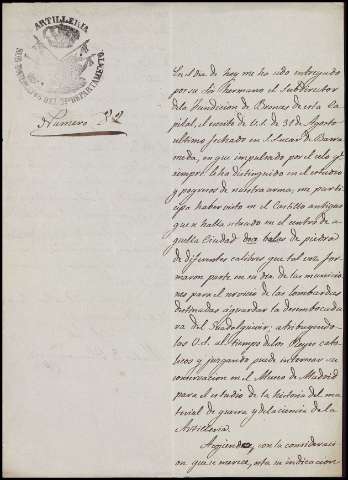 ARTILLERIA
SUBINSPECCION DEL 3er DEPARTAMENTO.
Numero
En el dia de hoy me ha sido entregado
por su Sr hermano el Subdirector
de la Fundicion de Bronces de esta Ca-
pital, el escrito de V.S. de 31 de Agosto
ultimo fechado en S. Lucar de Barra-
meda, en que impulsado por el celo q.
siempre le ha distinguido en el estudio
y progresos de nuestra arma, me parti-
cipa haber visto en el Castillo antiguo
que se halla situado en el centro de a-
quella Ciudad dos balas de piedra
de diferentes calibres que tal vez for-
maron parte en su dia de las municio-
nes para el servicio de las lombardas
destinadas a guardar la desembocadu-
ra del Guadalquivir; atribuyendo-
las V.S. al tiempo de los Reyes cato-
licos y juzgando puede interesar su
conservacion en el Museo de Madrid
para el estudio de la historia del ma-
terial de guerra y de la ciencia de la
Artilleria.
Acogiendo, con la consideraci-
on que se merece, esta su indicacion